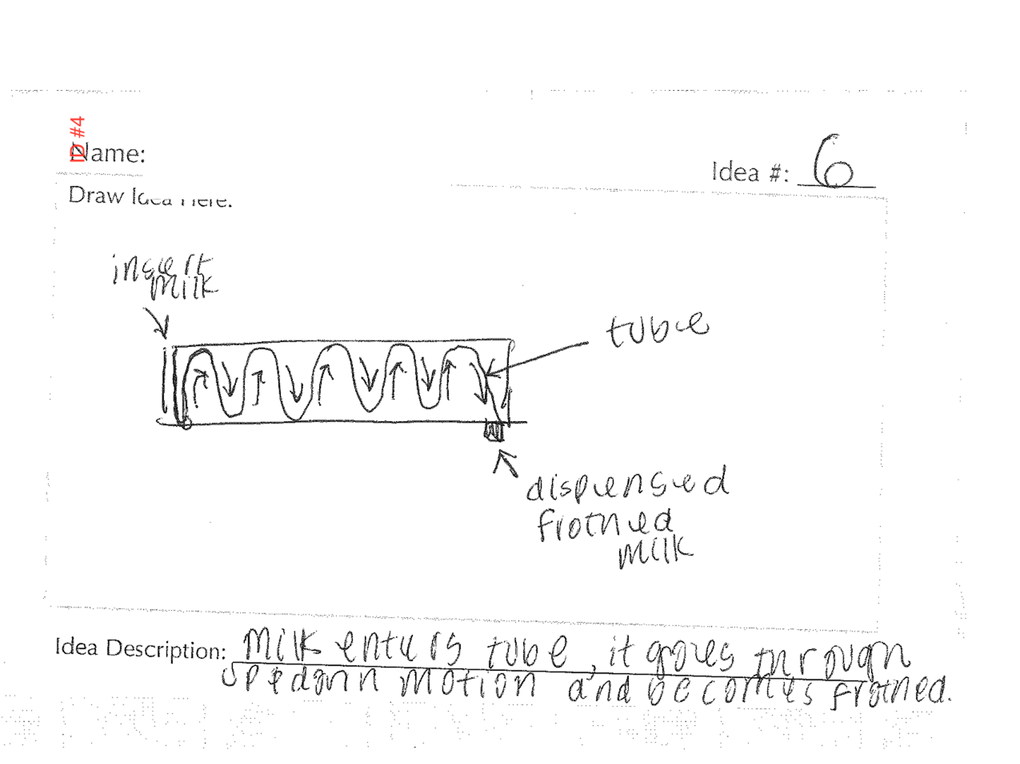 ID #4
Name:
Idea #: 6
Draw Idea Here:
insert
milk
tube
dispensed
frothed
milk
Idea Description: Milk enters tube, it goes through
motion and becomes frothed.